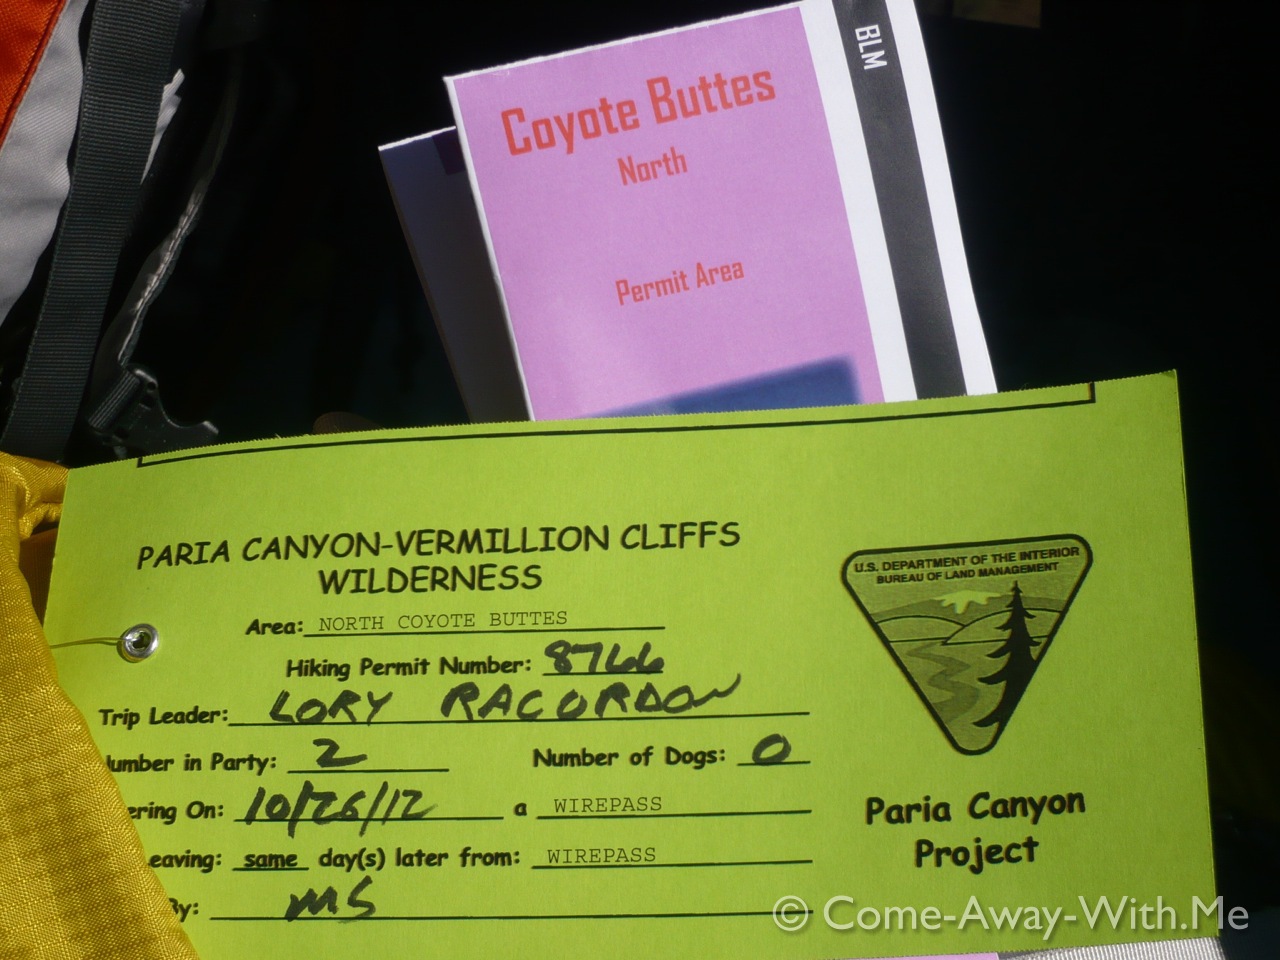 BLM
Coyote Buttes
North
Permit Area
PARIA CANYON-VERMILLION CLIFFS
WILDERNESS
Area: NORTH COYOTE BUTTES
Hiking Permit Number: 8766
Trip Leader: LORY RACORDON
umber in Party: 2 Number of Dogs: 0
ering On: 10/26/12 a WIREPASS
eaving: same day(s) later from: WIREPASS
By: MS
U.S. DEPARTMENT OF THE INTERIOR
BUREAU OF LAND MANAGEMENT
Paria Canyon
Project
© Come-Away-With.Me